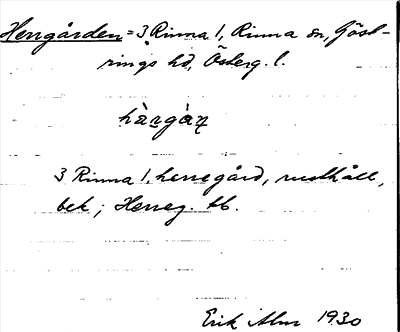 Herrgården = 3 Rinna 1, Rinna sn, Göst-
rings hd, Österg. l.
hàrgàɳ
3 Rinna 1, herregård, rusthåll,
bek.; Herreg. tb.
Erik Alm 1930